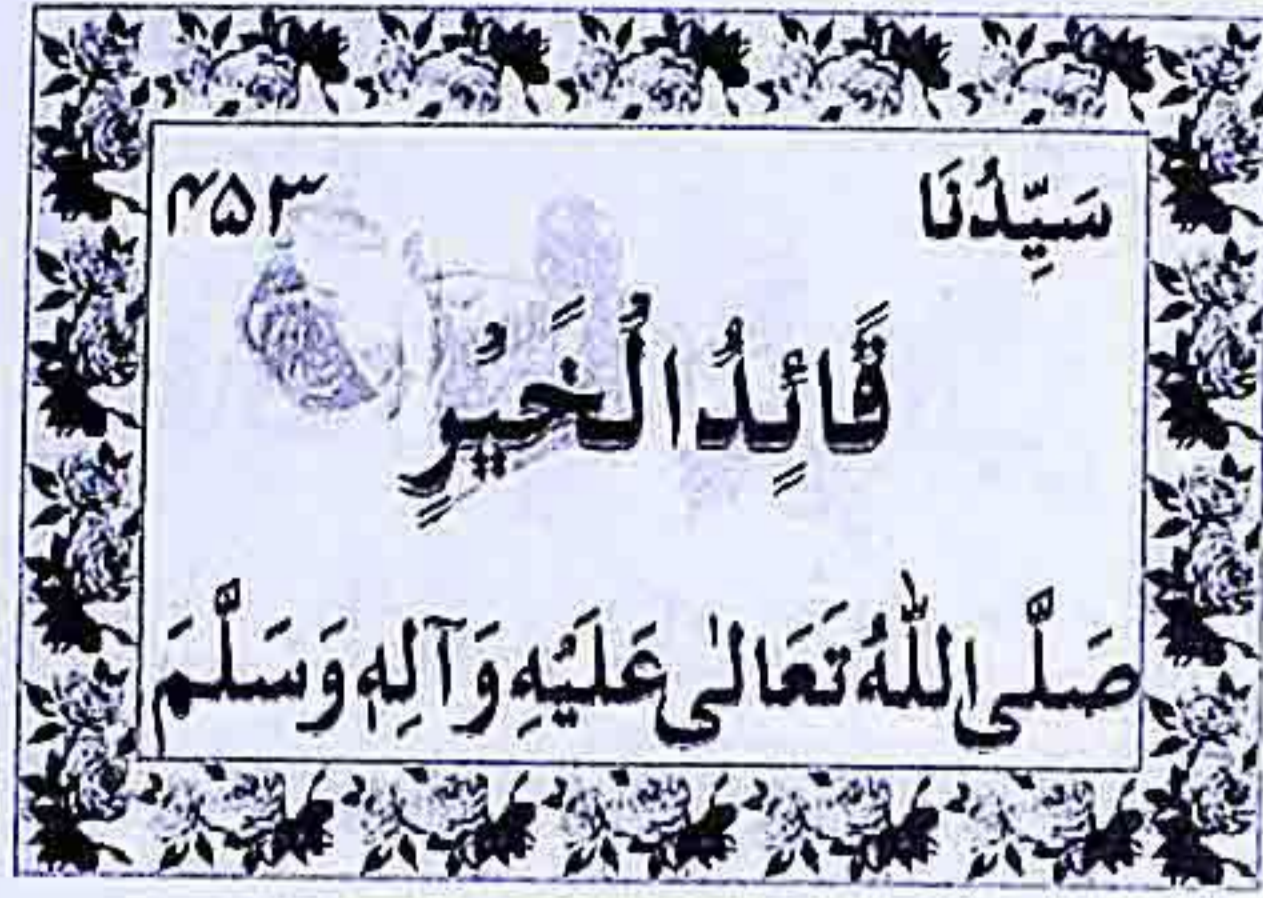 سَيِّدُنَا ۴۵۳
قَائِدُ الْخَيْرِ
صَلَّی اللّٰهُ تَعَالٰی عَلَيْهِ وَآلِهٖ وَسَلَّمَ